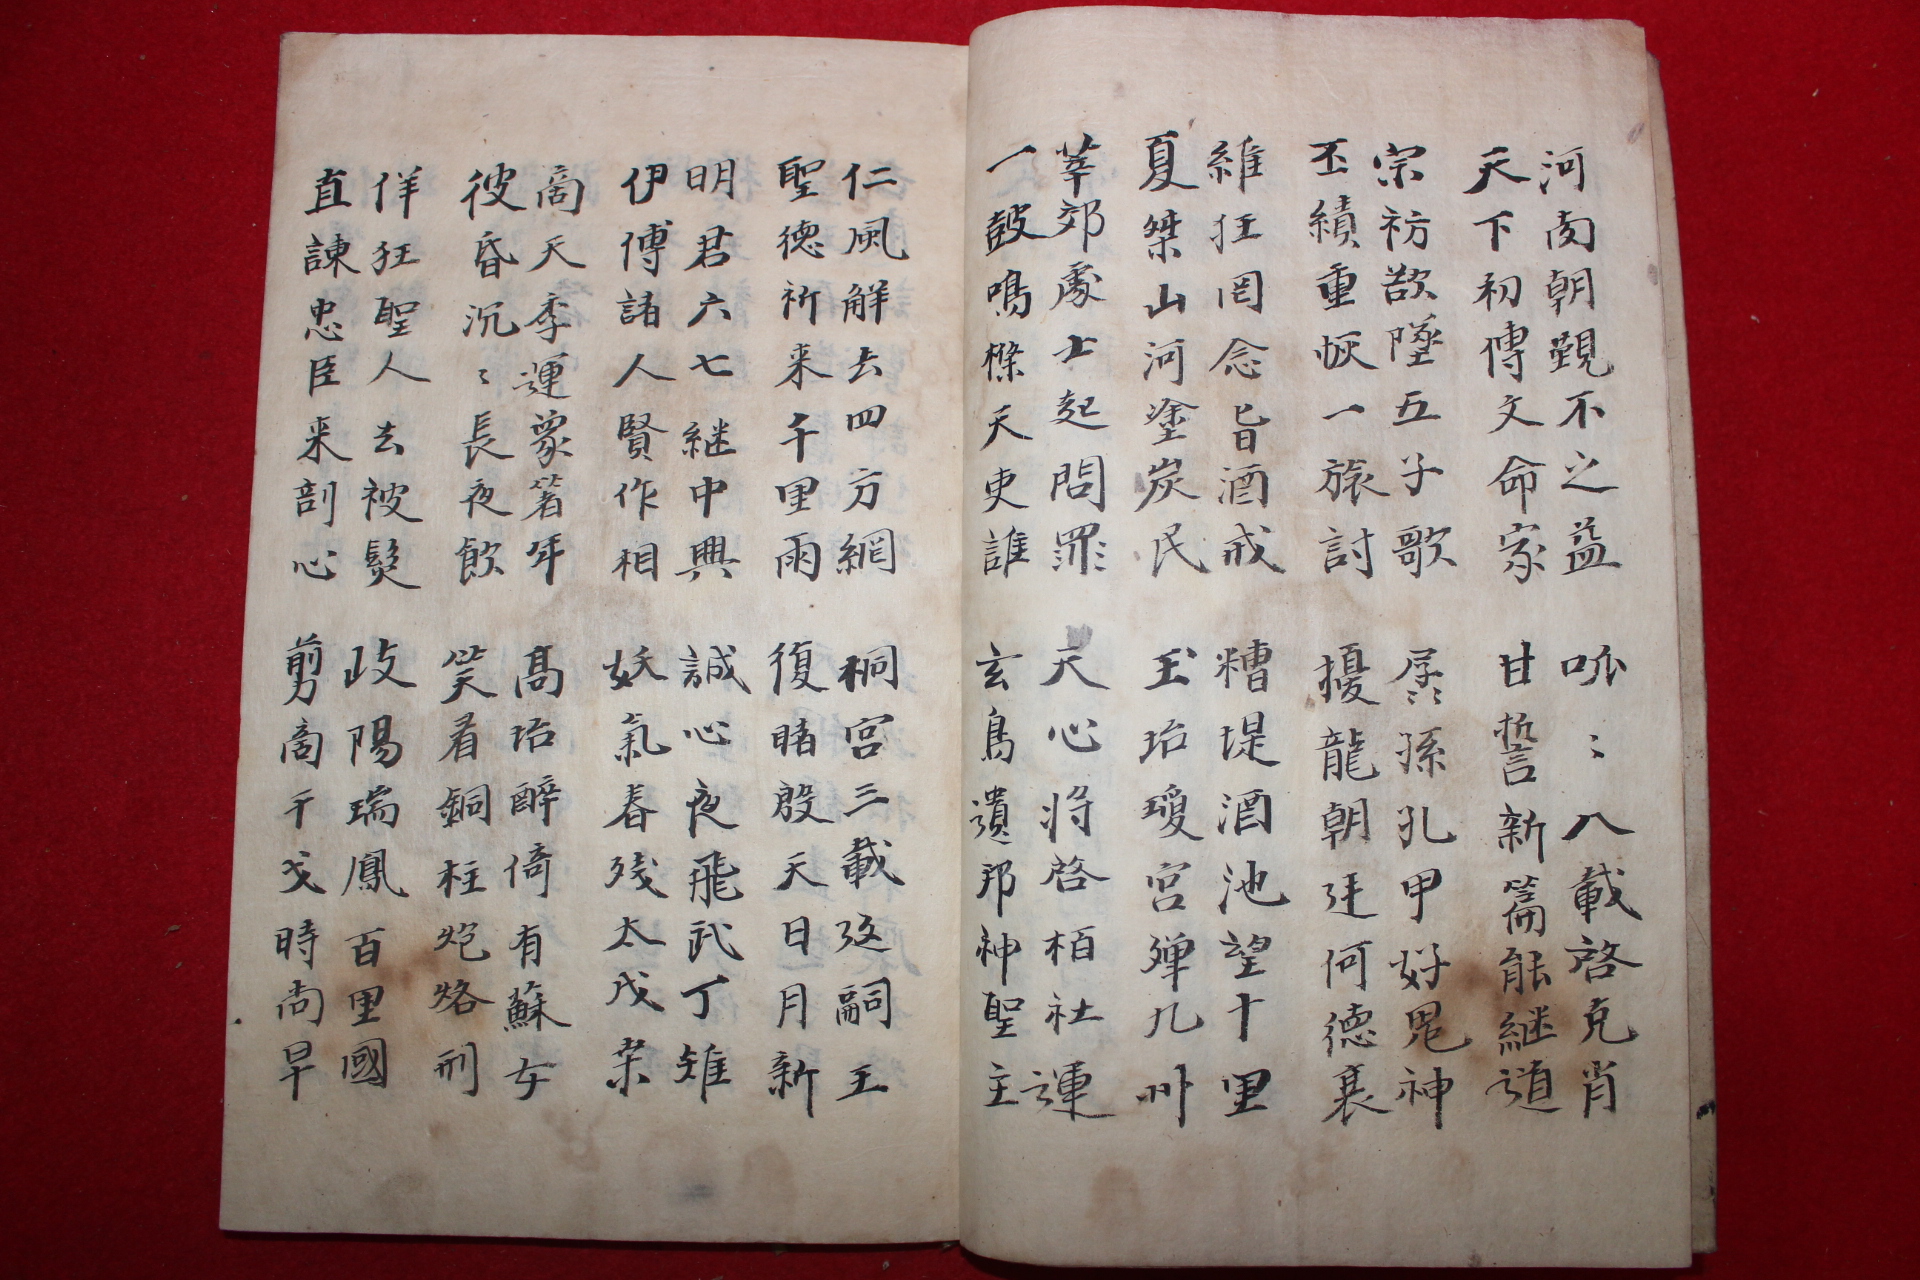 河南朝覲不之益 呱〻八載啓克肖
天下初傳文命家 甘誓新篇能継道
宗祊欲墜五子歌 孱孫孔甲好鬼神
丕績重恢一旅討 擾龍朝廷何德襄
維狂罔念旨酒戒 糟堤酒池望十里
夏桀山河塗炭民 玉坮瓊宮殫九州
莘郊處士起問罪 天心將啓栢社運
一皷鳴條天吏誰 玄鳥遺邦神聖主
仁風解去四方網 桐宮三載返嗣王
聖德祈来千里雨 復睹殷天日月新
明君六七継中興 誠心夜飛武丁雉
伊傅諸人賢作相 妖氣春残太戊桒
商天季運象箸年 高坮醉倚有蘇女
彼昏沉〻長夜飮 笑看銅柱炮烙刑
佯狂聖人去被髮 歧陽瑞鳳百里國
直諫忠臣来剖心 剪商干戈時尚早